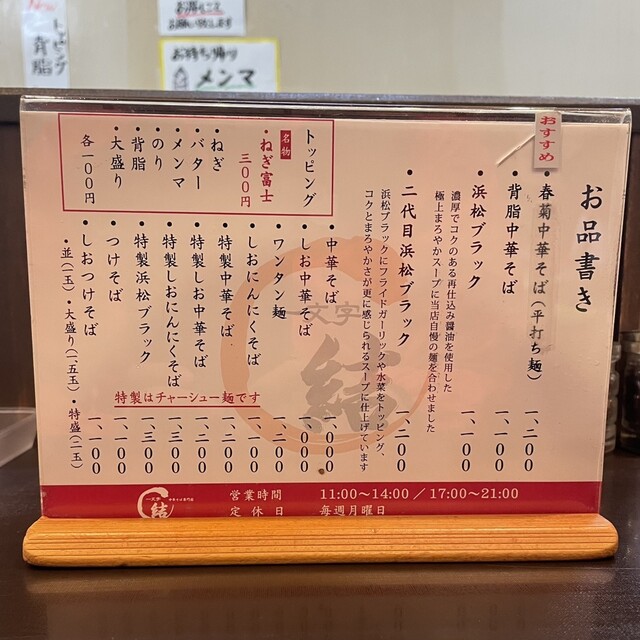 New
トッピング
背脂
お願いします
お持ち帰り
メンマ
おすすめ
お品書き
・春菊中華そば(平打ち麺) 一、二〇〇
・背脂中華そば 一、一〇〇
・浜松ブラック 一、一〇〇
濃厚でコクのある再仕込み醤油を使用した
極上まろやかスープに当店自慢の麺を合わせました
・二代目浜松ブラック 一、二〇〇
浜松ブラックにフライドガーリックや水菜をトッピング、
コクとまろやかさが更に感じられるスープに仕上げています
トッピング
名物
・ねぎ富士
三〇〇円
・ねぎ
・バター
・メンマ
・のり
・背脂
・大盛り
各一〇〇円
・中華そば 一、〇〇〇
・しお中華そば 一、〇〇〇
・ワンタン麺 一、二〇〇
・しおにんにくそば 一、一〇〇
・特製中華そば 一、二〇〇
・特製しお中華そば 一、二〇〇
・特製しおにんにくそば 一、三〇〇
・特製浜松ブラック 一、三〇〇
・つけそば 一、一〇〇
・しおつけそば 一、一〇〇
・並(一玉)・大盛り(一、五玉)・特盛(二玉)
特製はチャーシュー麺です
一文字
結
一文字
結
営業時間 11:00〜14:00 / 17:00〜21:00
定休日 毎週月曜日